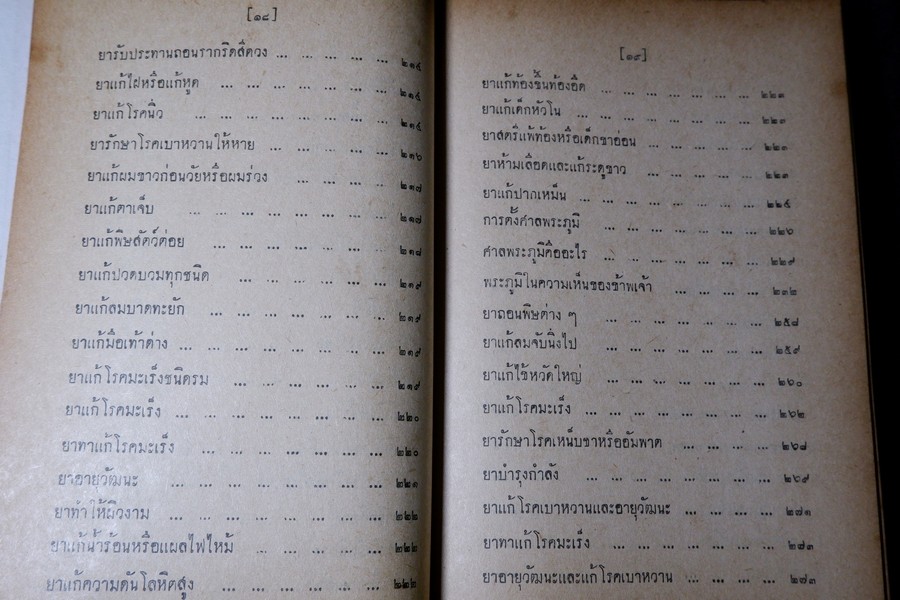 [๑๘]
ยารับประทานถอนรากริดสีดวง ... ... ... ... ... ๒๑๕
ยาแก้ไฝหรือแก้หูด ... ... ... ... ... ... ๒๑๕
ยาแก้โรคนิ่ว ... ... ... ... ... ... ... ๒๑๕
ยารักษาโรคเบาหวานให้หาย ... ... ... ... ... ๒๑๖
ยาแก้ผมขาวก่อนวัยหรือผมร่วง ... ... ... ... ... ๒๑๗
ยาแก้ตาเจ็บ ... ... ... ... ... ... ... ๒๑๗
ยาแก้พิษสัตว์ต่อย ... ... ... ... ... ... ๒๑๘
ยาแก้ปวดบวมทุกชนิด ... ... ... ... ... ... ๒๑๙
ยาแก้ลมบาดทะยัก ... ... ... ... ... ... ๒๑๙
ยาแก้มือเท้าด่าง ... ... ... ... ... ... ... ๒๑๙
ยาแก้โรคมะเร็งชนิดรม ... ... ... ... ... ... ๒๑๙
ยาแก้โรคมะเร็ง ... ... ... ... ... ... ... ๒๒๐
ยาทาแก้โรคมะเร็ง ... ... ... ... ... ... ... ๒๒๐
ยาอายุวัฒนะ ... ... ... ... ... ... ... ... ๒๒๑
ยาทำให้ผิวงาม ... ... ... ... ... ... ... ... ๒๒๒
ยาแก้น้ำร้อนหรือแผลไฟไหม้ ... ... ... ... ... ๒๒๒
ยาแก้ความดันโลหิตสูง ... ... ... ... ... ... ๒๒๒
[๑๙]
ยาแก้ท้องขึ้นท้องอืด ... ... ... ... ... ... ... ๒๒๓
ยาแก้เด็กหัวโน ... ... ... ... ... ... ... ... ๒๒๓
ยาสตรีแพ้ท้องหรือเด็กขาอ่อน ... ... ... ... ... ๒๒๓
ยาห้ามเลือดและแก้ระดูขาว ... ... ... ... ... ๒๒๓
ยาแก้ปากเหม็น ... ... ... ... ... ... ... ... ๒๒๕
การตั้งศาลพระภูมิ ... ... ... ... ... ... ... ๒๒๖
ศาลพระภูมิคืออะไร ... ... ... ... ... ... ... ๒๒๙
พระภูมิในความเห็นของข้าพเจ้า ... ... ... ... ๒๓๒
ยาถอนพิษต่าง ๆ ... ... ... ... ... ... ... ๒๕๘
ยาแก้ลมจับนิ่งไป ... ... ... ... ... ... ... ๒๕๙
ยาแก้ไข้หวัดใหญ่ ... ... ... ... ... ... ... ๒๖๐
ยาแก้โรคมะเร็ง ... ... ... ... ... ... ... ... ๒๖๒
ยารักษาโรคเหน็บชาหรืออัมพาต ... ... ... ... ... ๒๖๘
ยาบำรุงกำลัง ... ... ... ... ... ... ... ... ๒๖๙
ยาแก้โรคเบาหวานและอายุวัฒนะ ... ... ... ... ๒๗๑
ยาทาแก้โรคมะเร็ง ... ... ... ... ... ... ... ๒๗๓
ยาอายุวัฒนะและแก้โรคเบาหวาน ... ... ... ... ๒๗๓